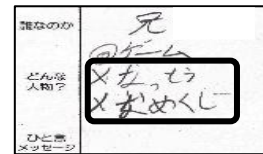 誰なのか
兄
◎ゲーム
どんな
人物？
Xなっとう
Xおめくじ
ひと言
メッセージ